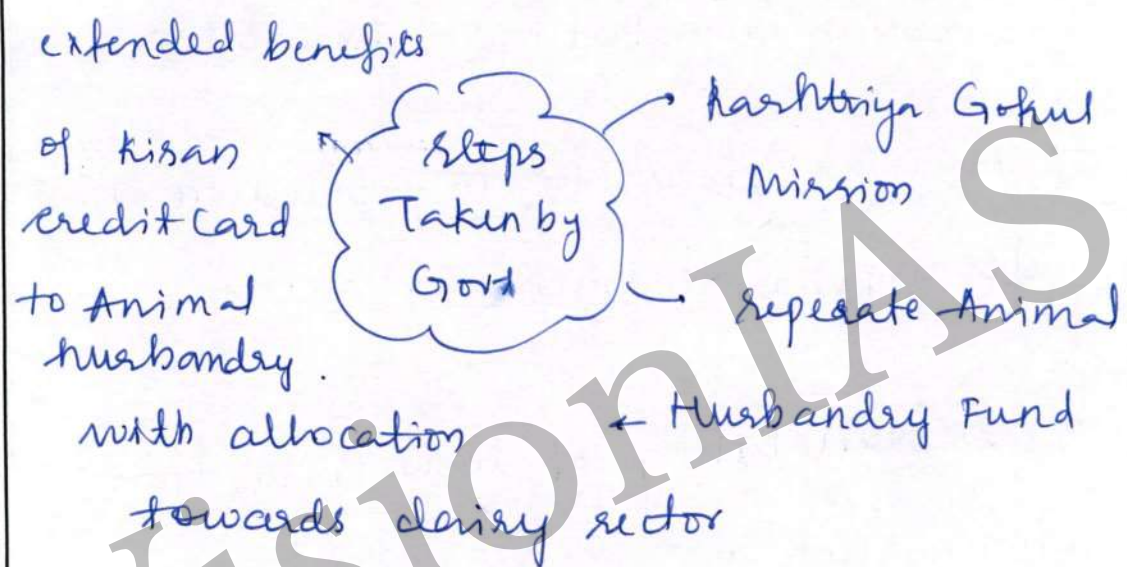 extended benefits
of kisan
credit card
to Animal
husbandry.
Steps
Taken by
Govt
Rashtriya Gokul
Mission
seperate Animal
Husbandry Fund
with allocation
towards dairy sector
VisionIAS